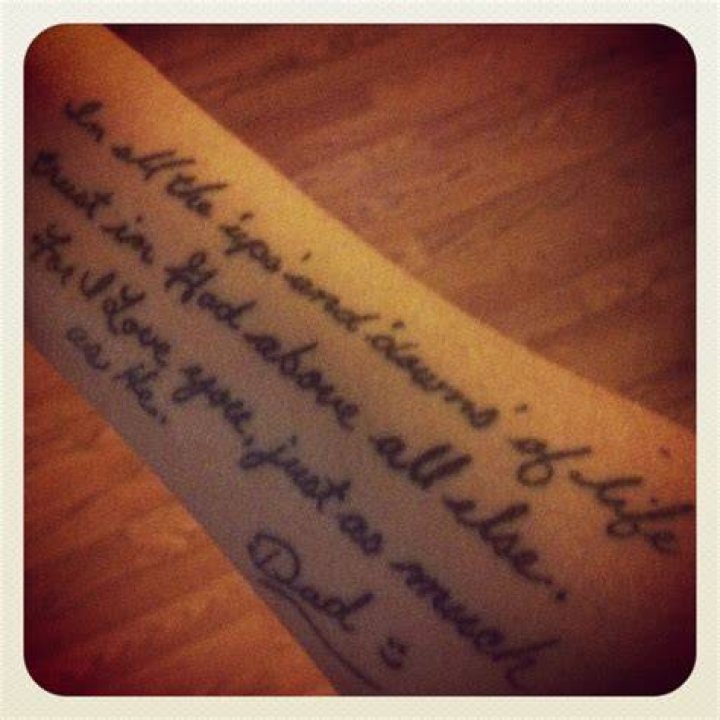 In all the 'ups' and 'downs' of life
trust in God above all else.
For I Love you, just as much
as He.
Dad